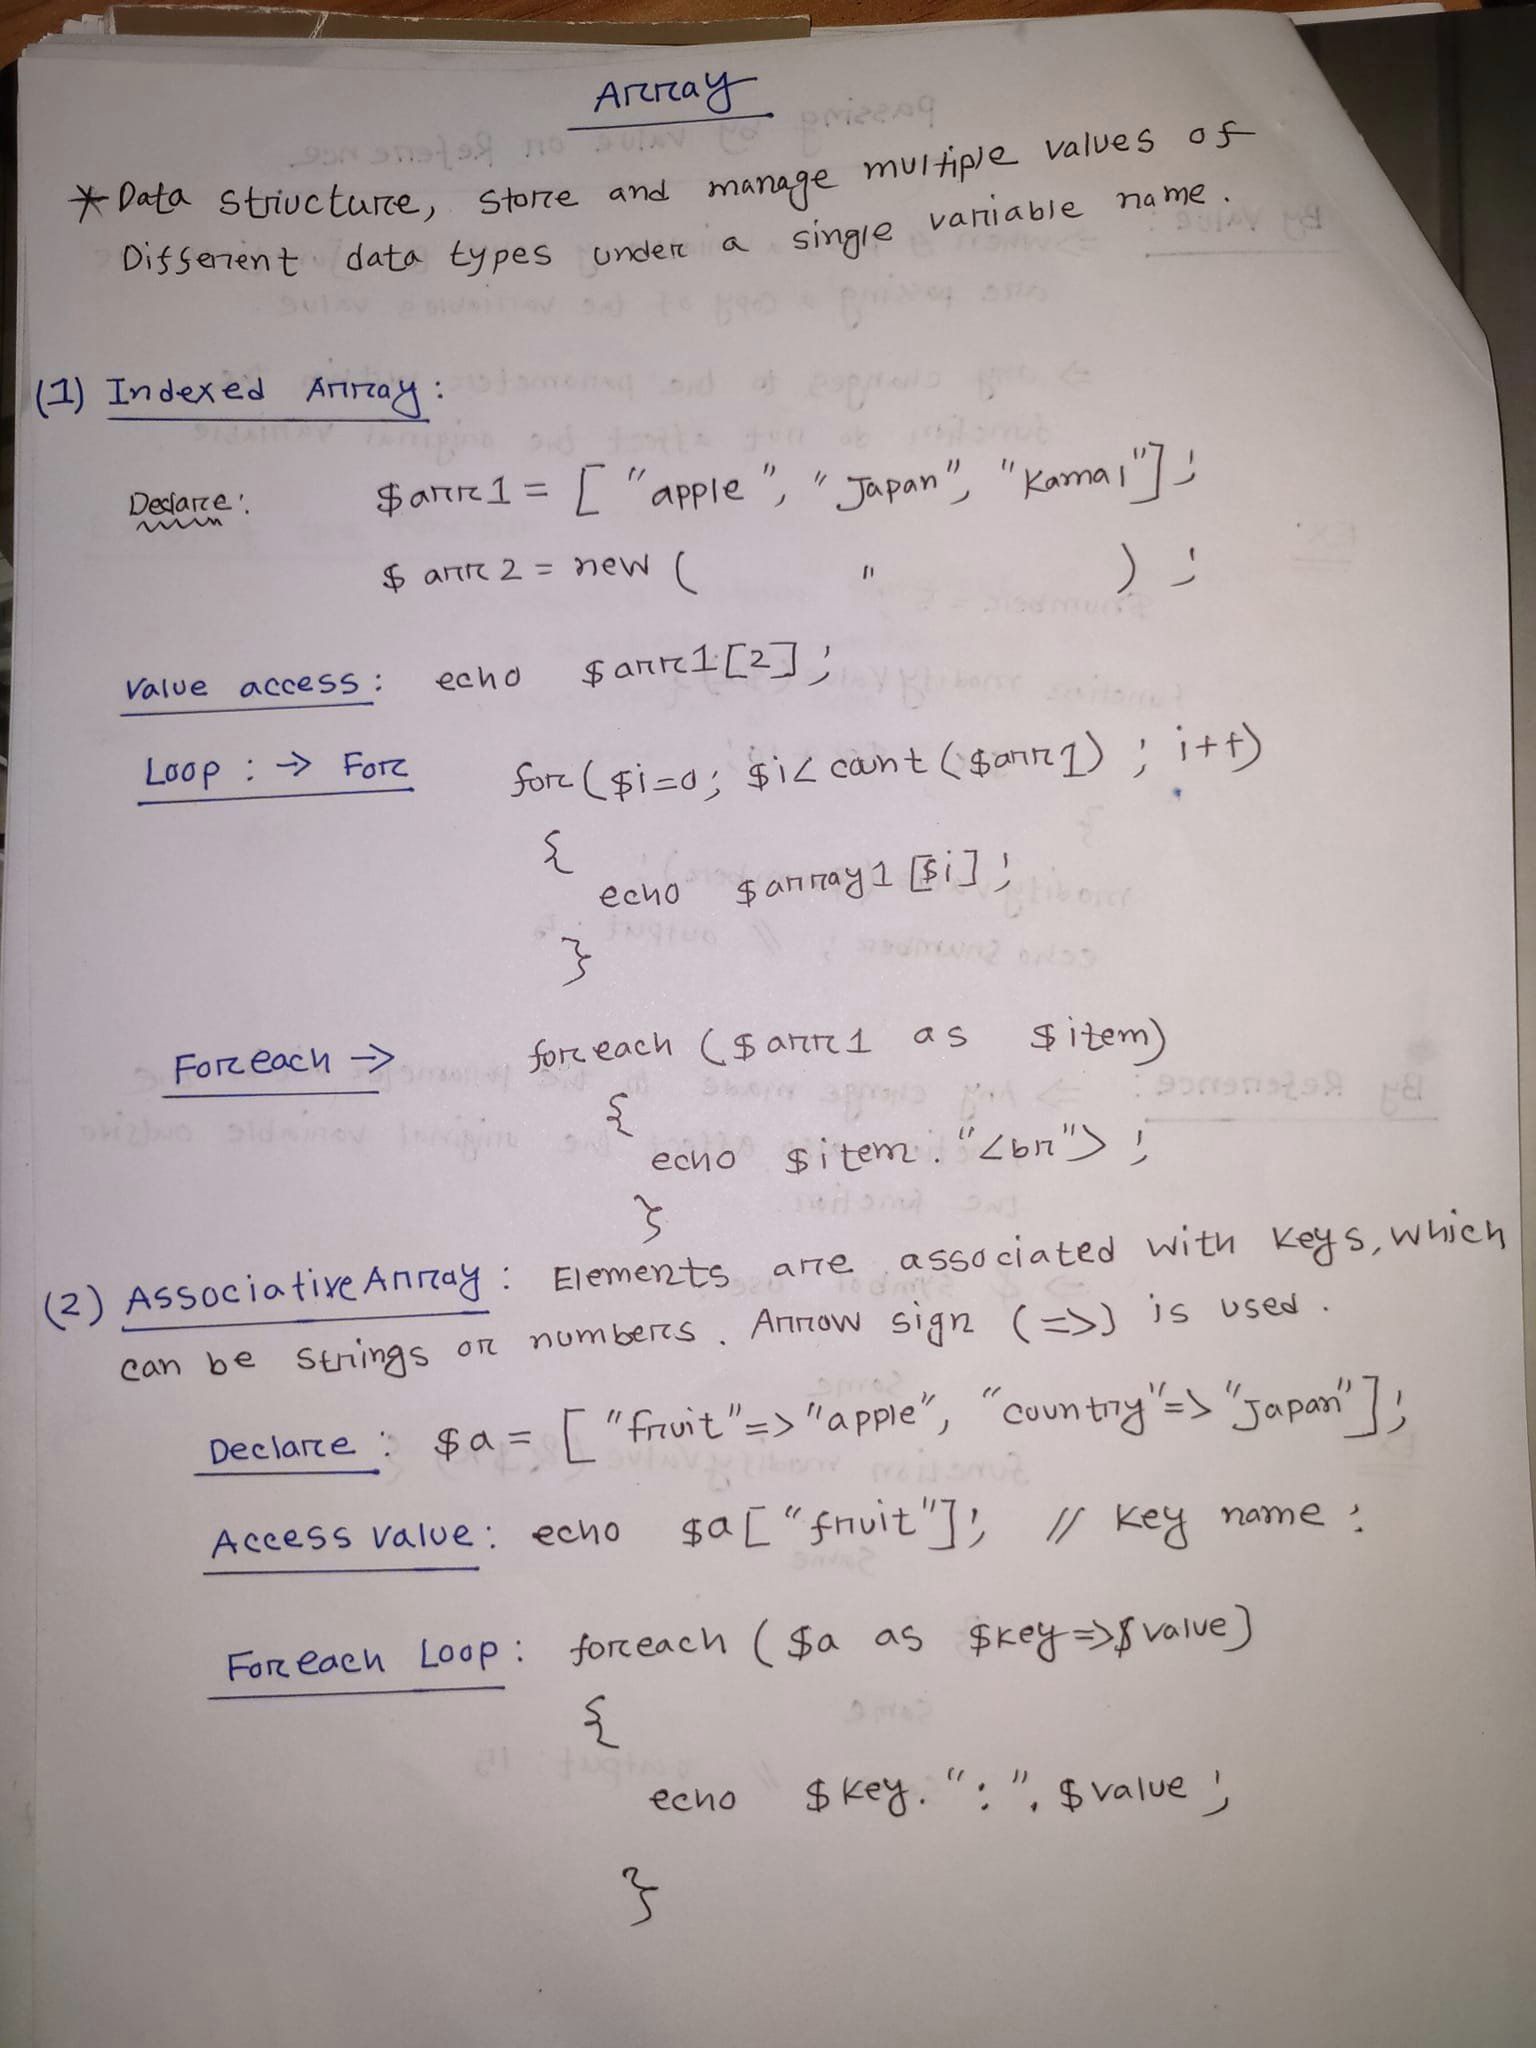 Array
* Data structure, store and manage multiple values of
Different data types under a single variable name.
(1) Indexed Array:
Declare: $arr1 = ["apple", "Japan", "Kamal"];
$arr2 = new ( " ) ;
Value access: echo $arr1[2];
Loop : → For for($i=0; $i< count($arr1) ; i++)
{
echo $array1 [$i];
}
Foreach → foreach ($arr1 as $item)
{
echo $item . "<br">;
}
(2) Associative Array : Elements are associated with keys, which
can be strings or numbers. Arrow sign (=>) is used.
Declare : $a = ["fruit"=>"apple", "country"=>"Japan"];
Access value: echo $a["fruit"]; // key name :
Foreach Loop: foreach ($a as $key=>$value)
{
echo $key.":". $value;
}